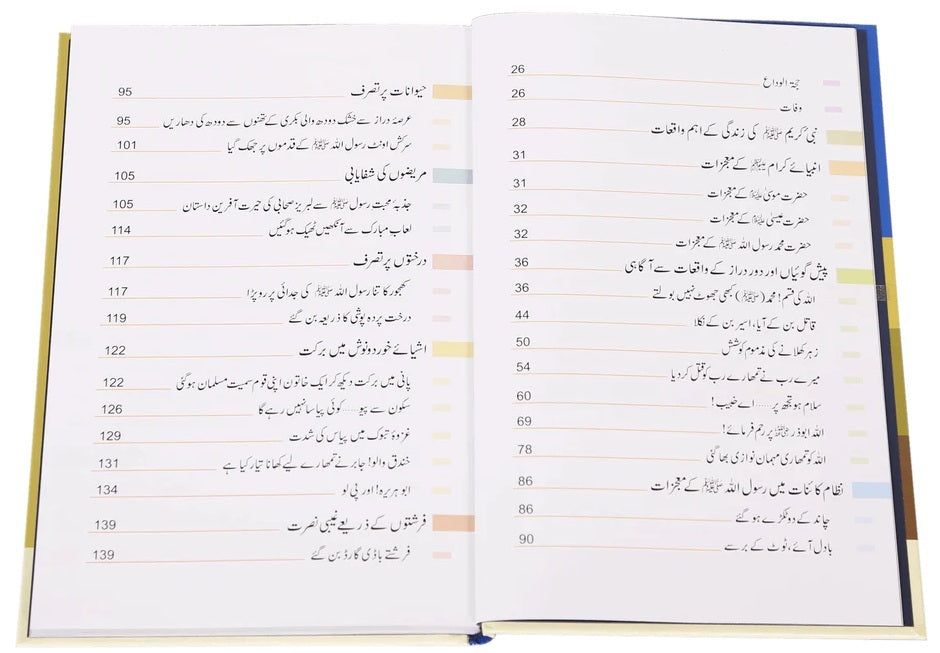 حجۃ الوداع 26
وفات 26
نبی کریم ﷺ کی زندگی کے اہم واقعات 28
انبیائے کرام ﷩ کے معجزات 31
حضرت موسیٰ ﷤ کے معجزات 31
حضرت عیسیٰ ﷤ کے معجزات 32
حضرت محمد رسول اللہ ﷺ کے معجزات 32
پیش گوئیاں اور دور دراز کے واقعات سے آگاہی 36
اللہ کی قسم! محمد (ﷺ) کبھی جھوٹ نہیں بولتے 36
قاتل بن کے آیا، اسیر بن کے نکلا 44
زہر کھلانے کی مذموم کوشش 50
میرے رب نے تمھارے رب کو قتل کر دیا 54
سلام ہو تجھ پر ...... اے خبیب! 60
اللہ ابوذر ﷜ پر رحم فرمائے! 69
اللہ کو تمھاری مہمان نوازی بھا گئی 78
نظام کائنات میں رسول اللہ ﷺ کے معجزات 86
چاند کے دو ٹکڑے ہو گئے 86
بادل آئے، ٹوٹ کے برسے 90
حیوانات پر تصرف 95
عرصۂ دراز سے خشک دودھ والی بکری کے تھنوں سے دودھ کی دھاریں 95
سرکش اونٹ رسول اللہ ﷺ کے قدموں پر جھک گیا 101
مریضوں کی شفایابی 105
جذبۂ محبت رسول ﷺ سے لبریز صحابی کی حیرت آفرین داستان 105
لعاب مبارک سے آنکھیں ٹھیک ہو گئیں 114
درختوں پر تصرف 117
کھجور کا تنا رسول اللہ ﷺ کی جدائی پر رو پڑا 117
درخت پردہ پوشی کا ذریعہ بن گئے 119
اشیائے خورد و نوش میں برکت 122
پانی میں برکت دیکھ کر ایک خاتون اپنی قوم سمیت مسلمان ہو گئی 122
سکون سے پیو ...... کوئی پیاسا نہیں رہے گا 126
غزوۂ تبوک میں پیاس کی شدت 129
خندق والو! جابر نے تمھارے لیے کھانا تیار کیا ہے 131
ابو ہریرہ! اور پی لو 134
فرشتوں کے ذریعے غیبی نصرت 139
فرشتے باڈی گارڈ بن گئے 139